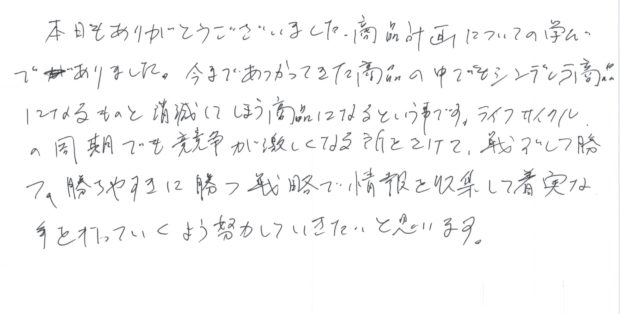 本日もありがとうございました。商品計画についての学び
でありました。今まであつかってきた商品の中でもシンデレラ商品
になるものと消滅してしまう商品になるという事です。ライフサイクル
の周期でも競争が激しくなる所をさけて、戦ずして勝
つ、勝ちやすきに勝つ戦略で情報を収集して着実な
手を打っていくよう努力していきたいと思います。